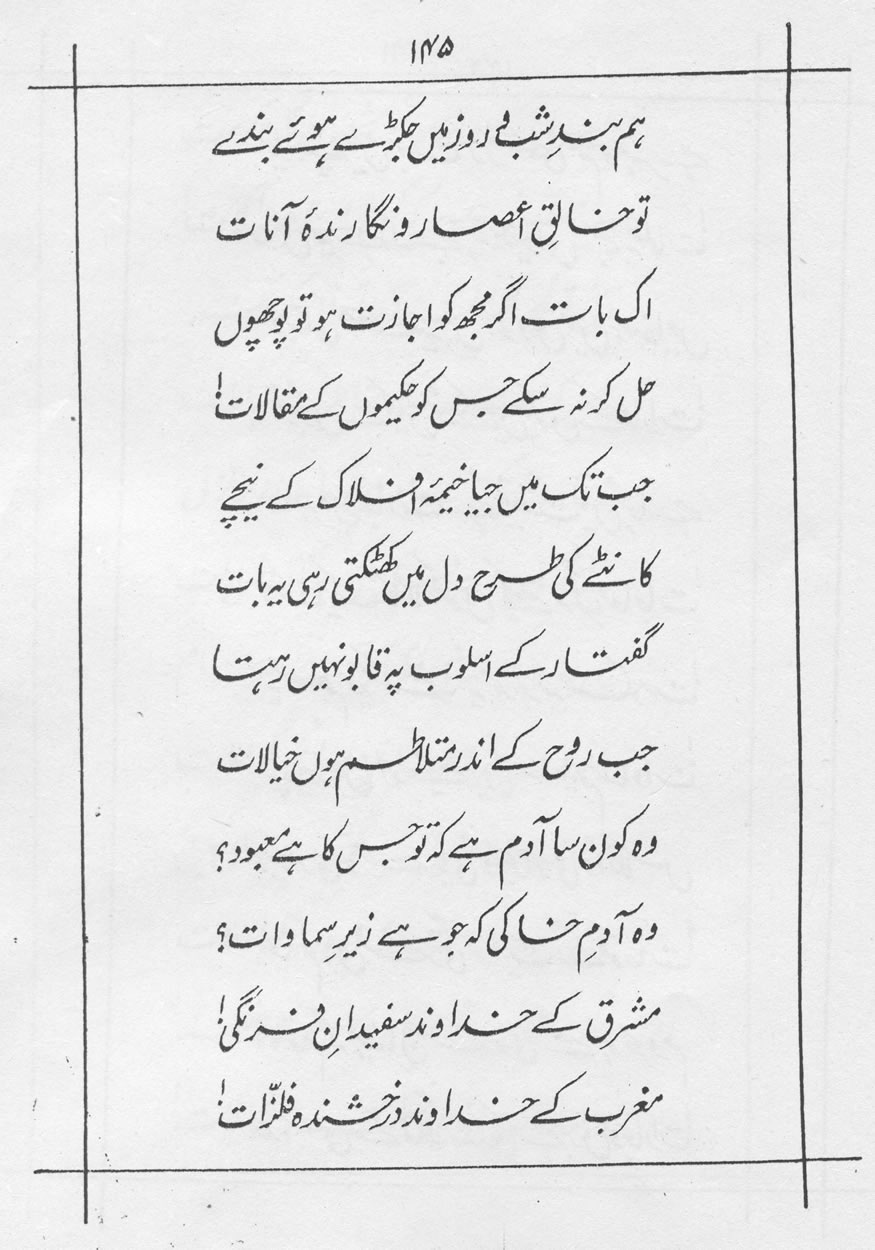 ۱۴۵
ہم بندِ شب و روز میں جکڑے ہوئے بندے
تو خالقِ اعصار و نگارندۂ آنات
اک بات اگر مجھ کو اجازت ہو تو پوچھوں
حل کر نہ سکے جس کو حکیموں کے مقالات!
جب تک میں جیا خیمۂ افلاک کے نیچے
کانٹے کی طرح دل میں کھٹکتی رہی یہ بات
گفتار کے اسلوب پہ قابو نہیں رہتا
جب روح کے اندر متلاطم ہوں خیالات
وہ کون سا آدم ہے کہ تو جس کا ہے معبود؟
وہ آدمِ خاکی کہ جو ہے زیرِ سماوات؟
مشرق کے خداوند سفیدانِ فرنگی!
مغرب کے خداوند درخشندہ فلزّات!